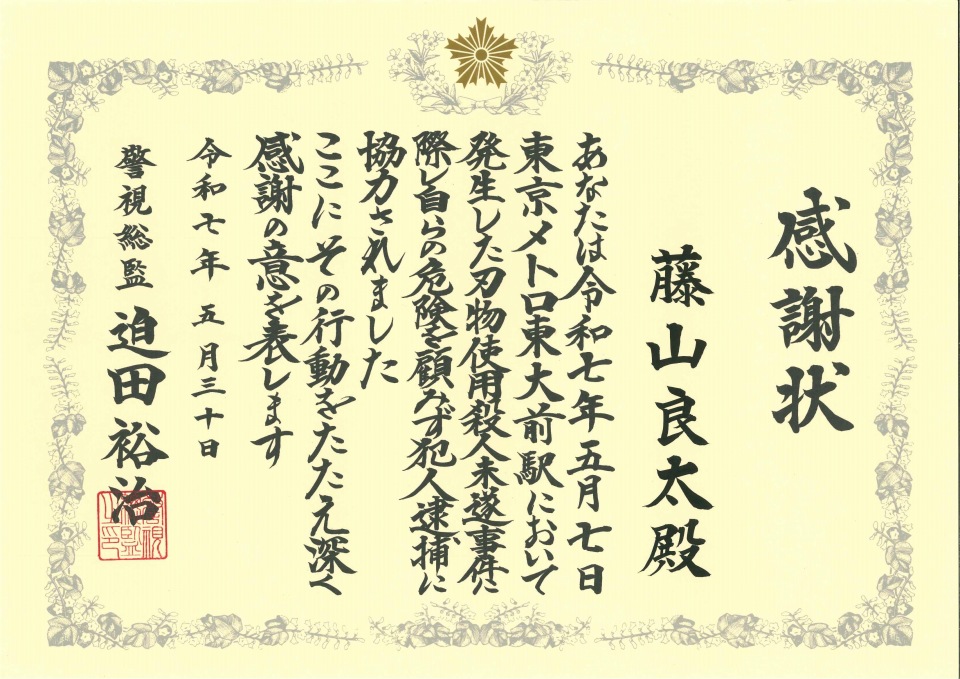 感謝状
藤山良太殿
あなたは令和七年五月七日
東京メトロ東大前駅において
発生した刃物使用殺人未遂事件に
際し自らの危険を顧みず犯人逮捕に
協力されました
ここにその行動をたたえ深く
感謝の意を表します
令和七年五月三十日
警視総監 迫田裕治
警視総監之印